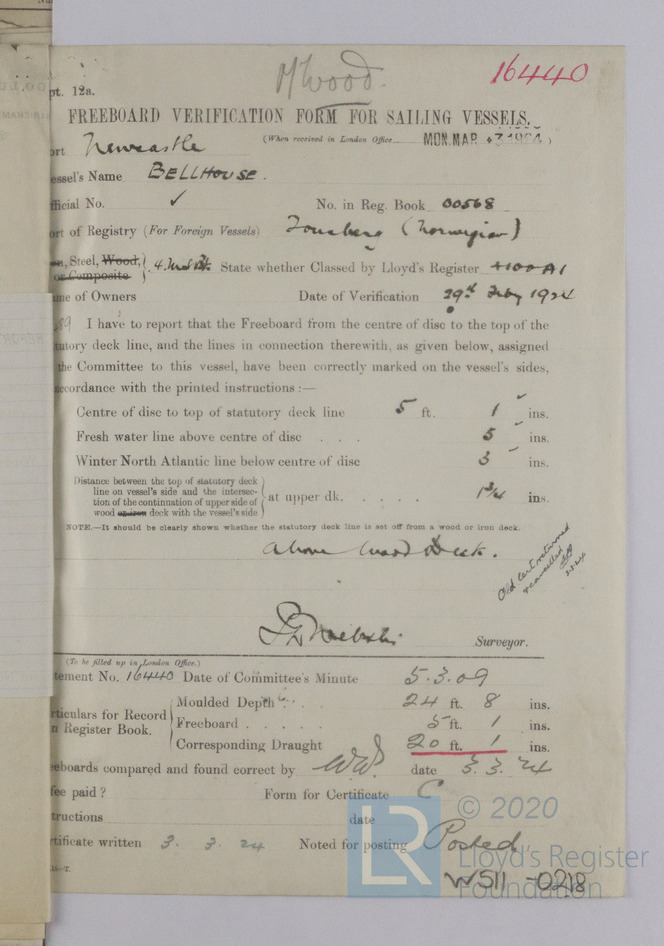 M Wood.
16440
pt. 12a.
FREEBOARD VERIFICATION FORM FOR SAILING VESSELS.
(When received in London Office MON. MAR. 3 1924)
ort Newcastle
essel's Name BELLHOUSE.
fficial No. ✓ No. in Reg. Book 00568
ort of Registry (For Foreign Vessels) Tonsberg (Norwegian)
n, Steel, Wood, State whether Classed by Lloyd's Register +100A1
or Composite
me of Owners Date of Verification 29th Feby 1924
I have to report that the Freeboard from the centre of disc to the top of the
tutory deck line, and the lines in connection therewith, as given below, assigned
the Committee to this vessel, have been correctly marked on the vessel's sides,
ccordance with the printed instructions :—
Centre of disc to top of statutory deck line 5 ft. 1 ins.
Fresh water line above centre of disc . . . 5 ins.
Winter North Atlantic line below centre of disc 3 ins.
Distance between the top of statutory deck
line on vessel's side and the intersec-
tion of the continuation of upper side of
wood or iron deck with the vessel's side
at upper dk. . . . . 1 3/4 ins.
NOTE.—It should be clearly shown whether the statutory deck line is set off from a wood or iron deck.
Above Wood Deck.
Old Cert returned
& cancelled
3.3.24
Surveyor.
(To be filled up in London Office.)
tement No. 16440 Date of Committee's Minute 5.3.09
rticulars for Record
n Register Book.
Moulded Depth . . . 24 ft. 8 ins.
Freeboard . . . . . 5 ft. 1 ins.
Corresponding Draught 20 ft. 1 ins.
eeboards compared and found correct by date 3.3.24
fee paid ? Form for Certificate C
tructions date
rtificate written 3. 3. 24 Noted for posting Posted
15—T.
LR
© 2020
Lloyd's Register
Foundation
W511-0218